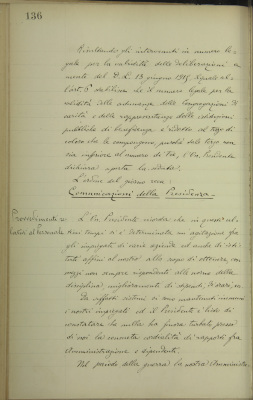 136
Risultando gli intervenuti in numero le-
gale per la validità delle deliberazioni a
mente del D. L. 13 giugno 1915, il quale al-
l'art. 5 stabilisce che il numero legale per la
validità delle adunanze delle Congregazioni di
carità e delle rappresentanze delle istituzioni
pubbliche di beneficenza è ridotto al terzo di
coloro che le compongono purché detto terzo non
sia inferiore al numero di tre, l'On. Presidente
dichiara aperta la seduta.
L'ordine del giorno reca:
Comunicazioni della Presidenza.
Provvedimenti re-
lativi al Personale
L'On. Presidente ricorda che in questi ul-
timi tempi si è determinata un agitazione fra
gli impiegati di aziende ed anche di isti-
tuti affini al nostro allo scopo di ottenere, con
mezzi non sempre rispondenti alle norme della
disciplina, miglioramenti di stipendi, di orari, ec.
Da siffatti sistemi si sono mantenuti immuni
i nostri impiegati ed il Presidente è lieto di
constatare che nulla ha finora turbato presso
di noi la consueta cordialità di rapporti fra
Amministrazione e dipendenti.
Nel periodo della guerra la nostra Amministra-